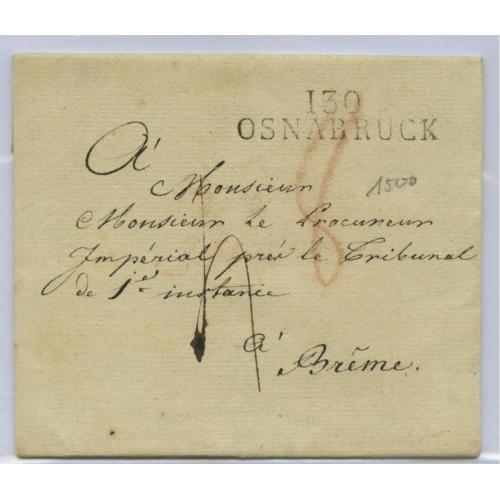 130
OSNABRUCK
1500
8
A'
Monsieur
Monsieur le Procureur
Impérial près le Tribunal
de 1.e instance
4
à
Brême.